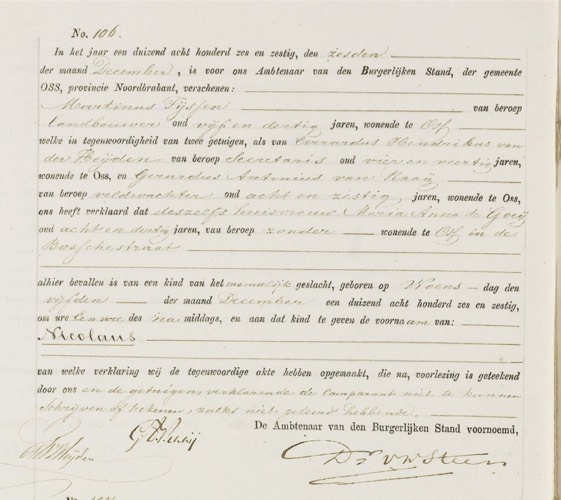 No. 106.
In het jaar een duizend acht honderd zes en zestig, den zesden
der maand December, is voor ons Ambtenaar van den Burgerlijken Stand, der gemeente
OSS, provincie Noordbrabant, verschenen:
Martinus Tijssen van beroep
landbouwer oud vijf en dertig jaren, wonende te Oss
welke in tegenwoordigheid van twee getuigen, als van Gerardus Hendrikus van
der Heijden van beroep Secretaris oud vier en veertig jaren,
wonende te Oss, en Gerardus Antonius van Raaij
van beroep veldwachter oud acht en zestig jaren, wonende te Oss,
ons heeft verklaard dat deszelfs huisvrouw Maria Anna de Goeij
oud acht en dertig jaren, van beroep zonder wonende te Oss in de
Bosschestraat
alhier bevallen is van een kind van het mannelijk geslacht, geboren op Woens-dag den
vijfden der maand December een duizend acht honderd zes en zestig,
om ure des na middags, en aan dat kind te geven de voornaam van:
Nicolaus
van welke verklaring wij de tegenwoordige akte hebben opgemaakt, die na, voorlezing is geteekend
door ons en de getuigen, verklarende de Comparant niet te kunnen
Schrijven of teekenen, zulks niet geleerd hebbende.
De Ambtenaar van den Burgerlijken Stand voornoemd,